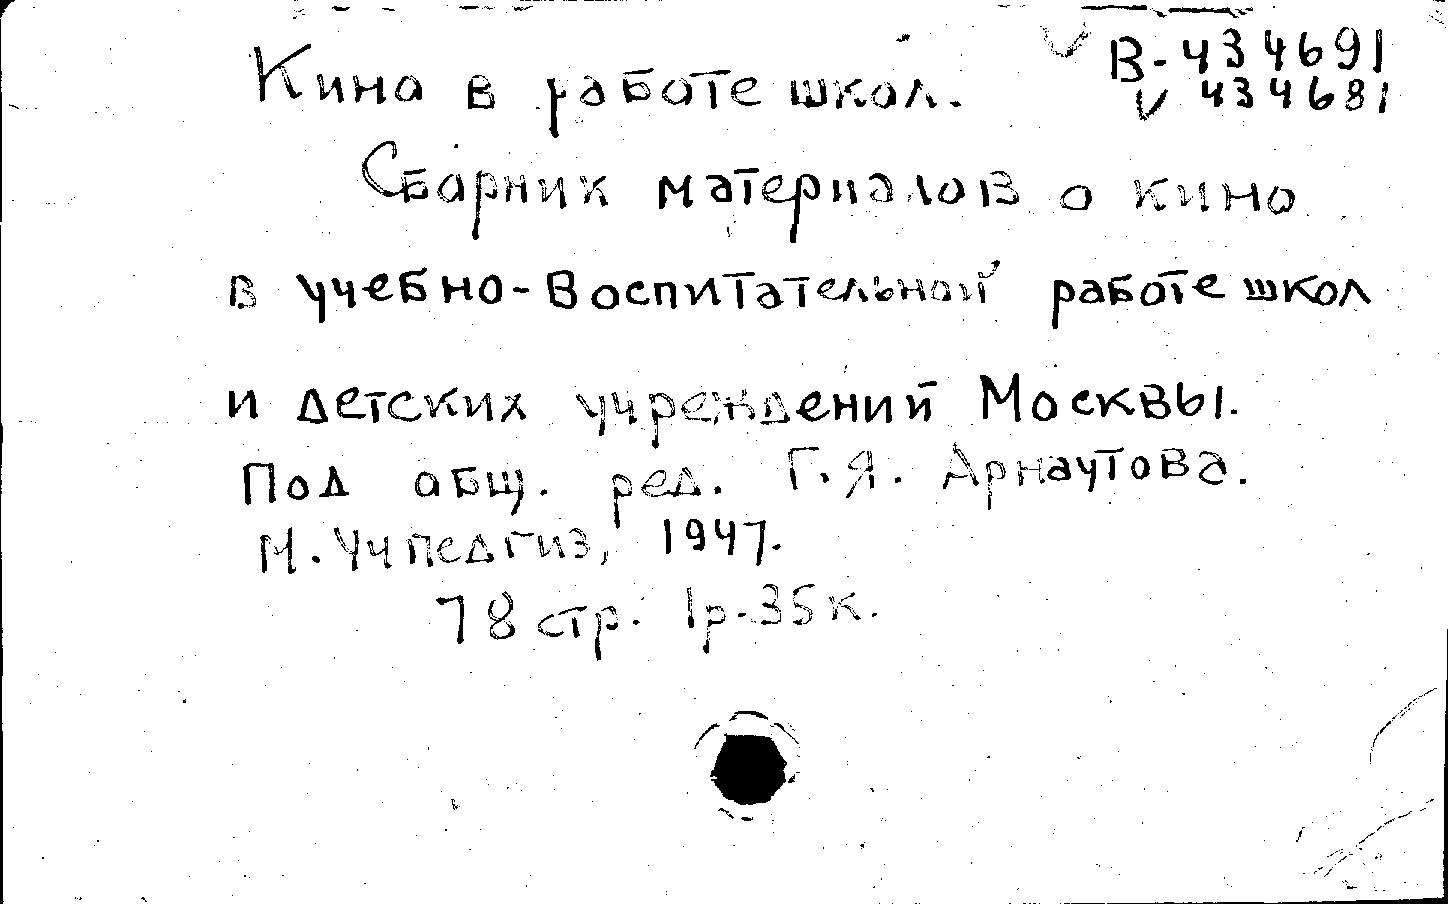 В-434691
434681
Кино в работе школ.
Сборник материалов о кино
в учебно-воспитательной работе школ
и детских учреждений Москвы.
Под общ. ред. Г.Я. Арнаутова.
М. Учпедгиз, 1947.
78 стр. 1р-35к.